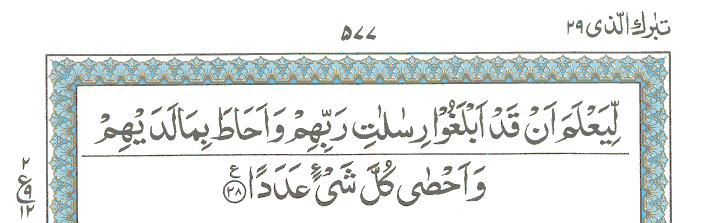 تبٰرك الّذی ۲۹
۵۷۷
لِّیَعْلَمَ اَنْ قَدْ اَبْلَغُوْا رِسٰلٰتِ رَبِّهِمْ وَاَحَاطَ بِمَا لَدَیْهِمْ
وَاَحْصٰی كُلَّ شَیْءٍ عَدَدًا ﴿۲۸﴾ ع
۲
ع
۹
۱۲